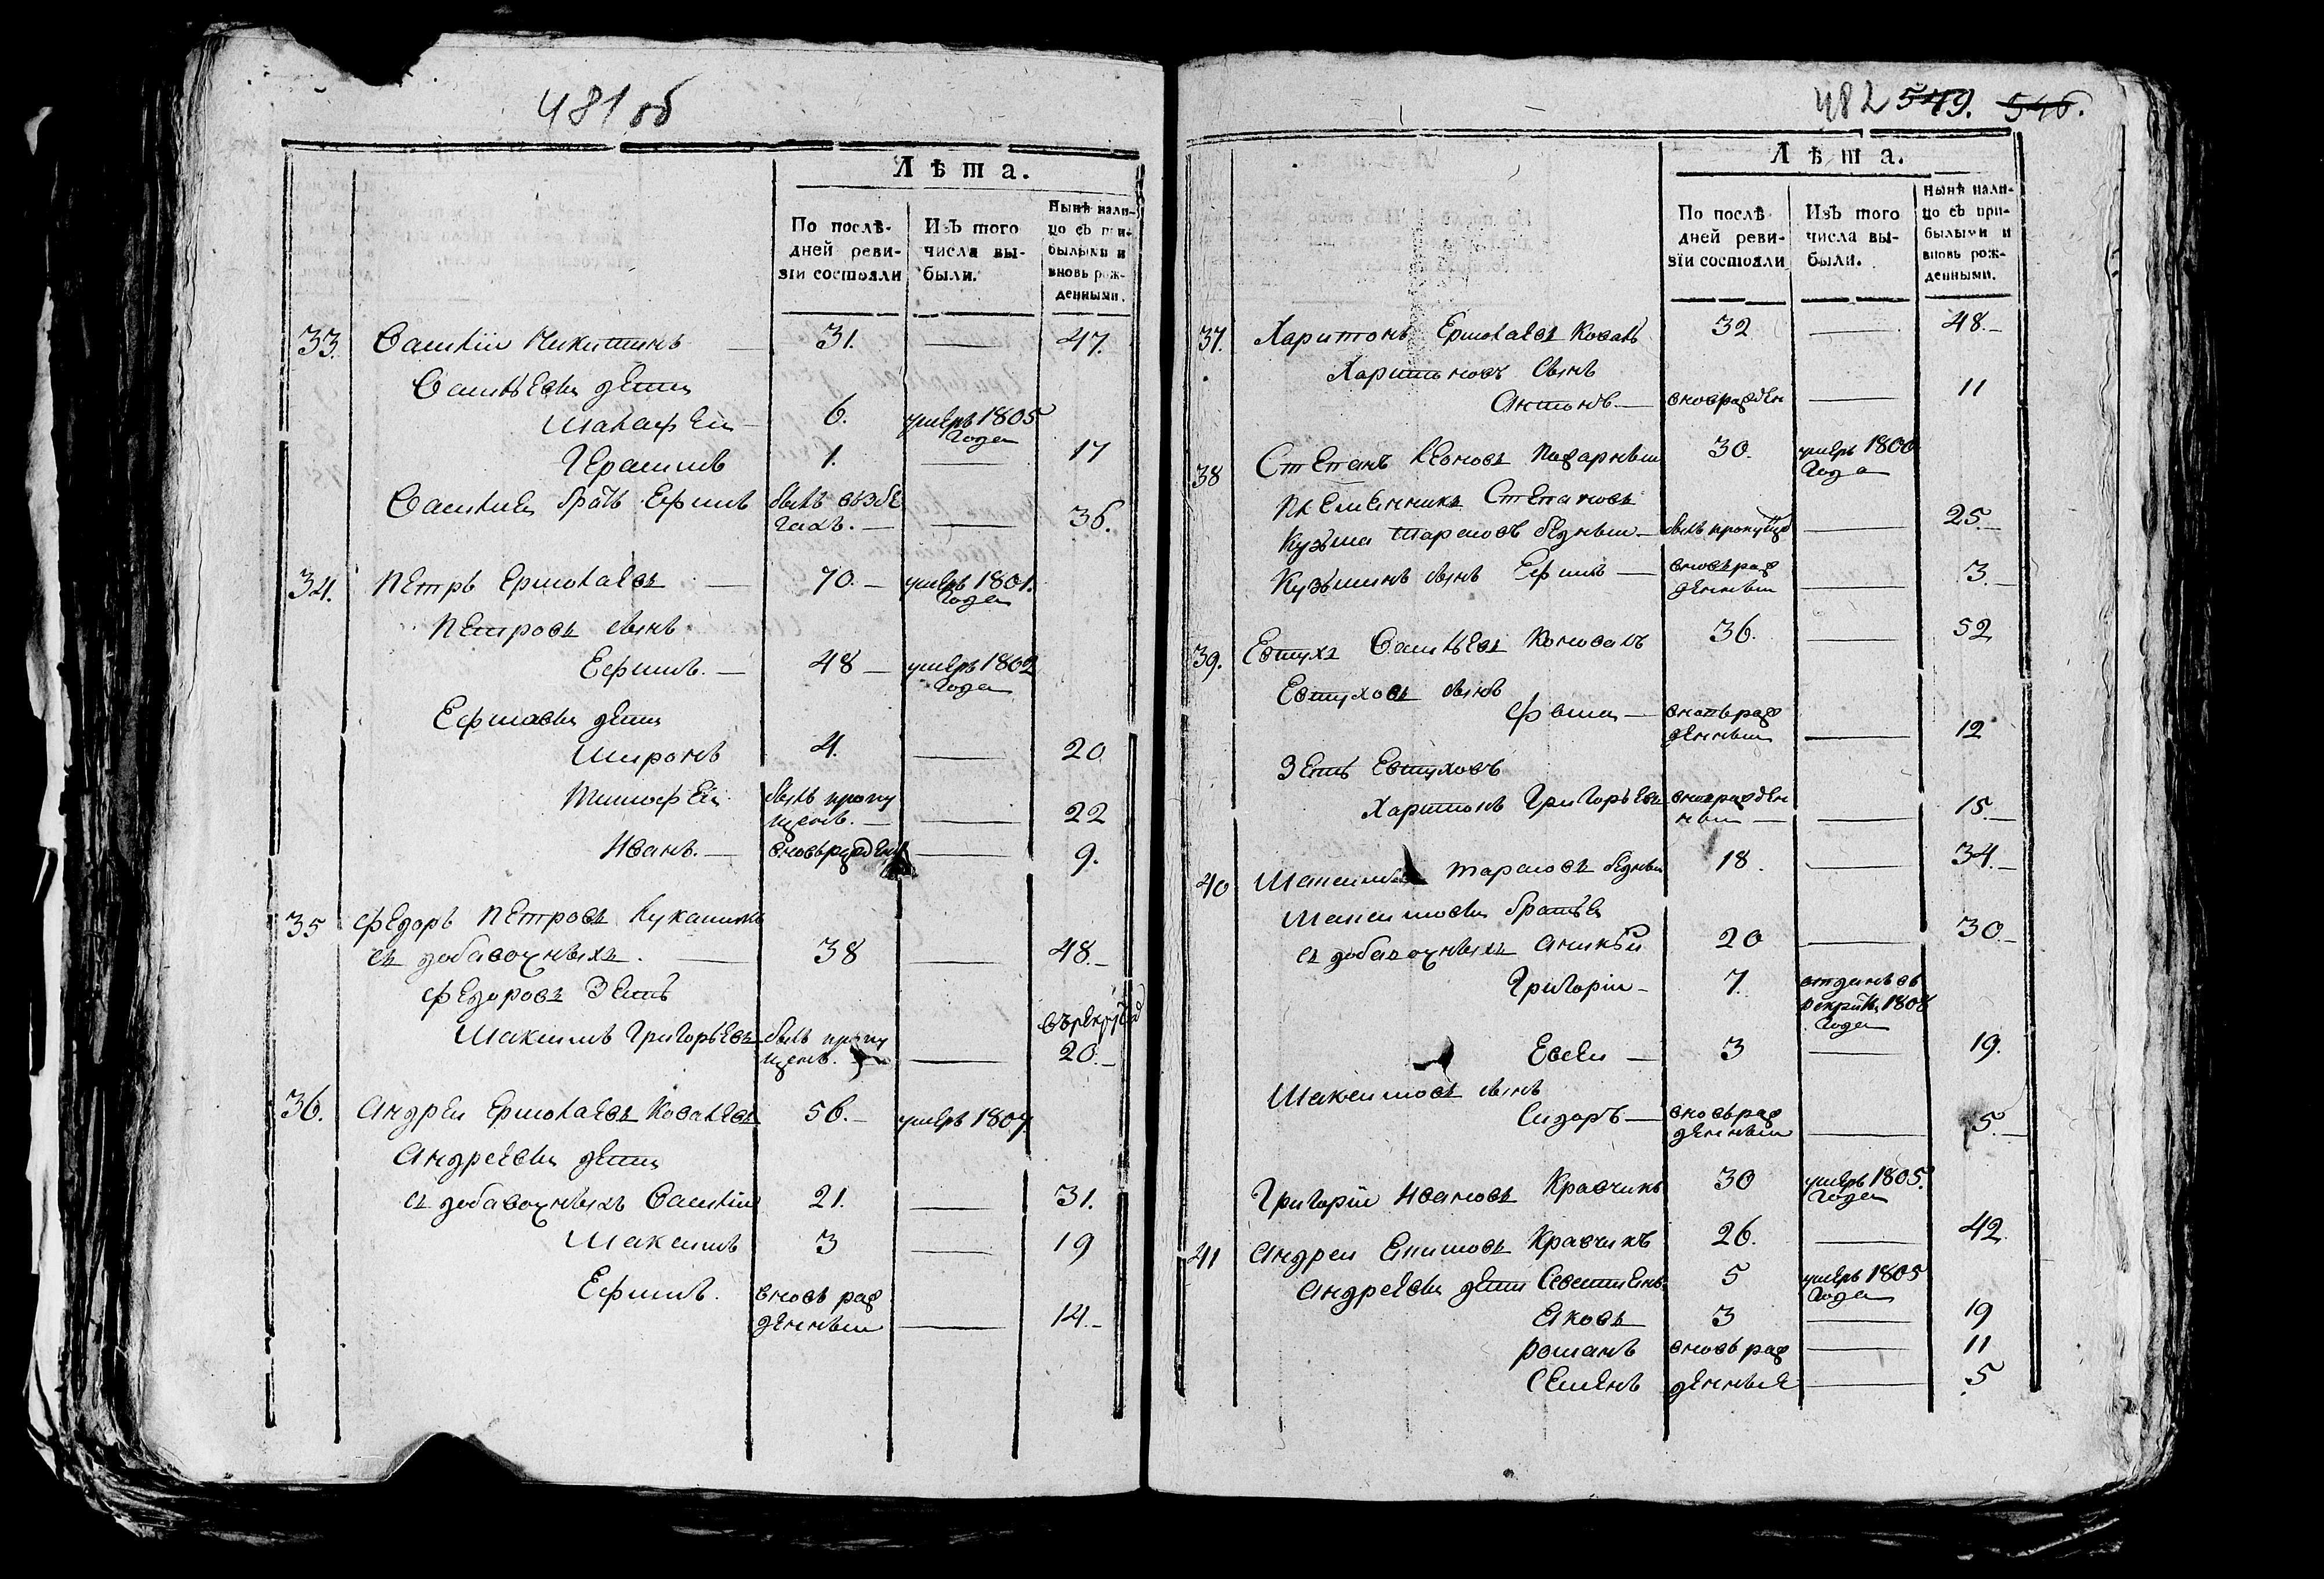 481 об
Лѣта.
По послѣдней ревизіи состояли
Изъ того числа выбыли.
Нынѣ налицо съ прибылыми и вновь рожденными.
33. Василіи Никитинъ 31. — 47.
Васильевы дети
Малафеи 6. умеръ 1805 года
Герасимъ 1. — 17
Василиев братъ Ефимъ былъ въ збегахъ. — 36.
34. Петръ Ермолаевъ — 70. — умеръ 1801. года
Петровъ сынъ
Ефимъ. — 48 — умеръ 1802 года
Ефимовы дети
Миронъ 4. — 20
Тимофеи былъ пропущенъ. — 22
Иванъ. — вновьрожденъ — 9.
35 Федоръ Петровъ
въ добавочныхъ. — 38 — 48.
Федоровъ зеть
Максимъ Григорьевъ былъ пропущенъ. — 20. —
36. Андреи Ермолаевъ Ковалевъ 56. — умеръ 1807.
Андреевы дети
въ добавочныхъ Василіи 21. — 31.
Максимъ 3 — 19
Ефимъ. вновь рожденныи — 14. —
482 549. 546.
Лѣта.
По послѣдней ревизіи состояли
Изъ того числа выбыли.
Нынѣ налицо съ прибылыми и вновь рожденными.
37. Харитонъ Ермолаевъ Коваль 32 — 48. —
Харитоновъ сынъ
Антонъ — вноврожден — 11
38 Степанъ Леоновъ 30. умеръ 1800 года
племенникъ Степановъ
Кузьма Тарасовъ бедныи — былъ — 25. —
Кузьминъ сынъ Ефимъ — вновьрожденныи — 3. —
39. Евтухъ Васильевъ Коновалъ 36. — 52
Евтуховъ сынъ
Фома — вновьрожденныи — 12
Зеть Евтуховъ
Харитонъ Григорьевъ вноврожденныи — — 15. —
40 Максимъ Тарасовъ бедныи 18. — 34. —
Максимовы братья
въ добавочныхъ Аникѣй 20 — 30. —
Григоріи — 7. отданъ въ рекруты года
Евсеи — 3 — 19.
Максимовъ сынъ
Сидоръ — вновьрожденныи — 5. —
Григоріи Ивановъ Кравчикъ 30 умеръ 1805. года
41 Андреи Екимовъ Кравчикъ 26. — 42.
Андреевы дети 5 умеръ 1805 года
Яковъ 3 — 19
Романъ вновь рож — 11
Семенъ денные — 5